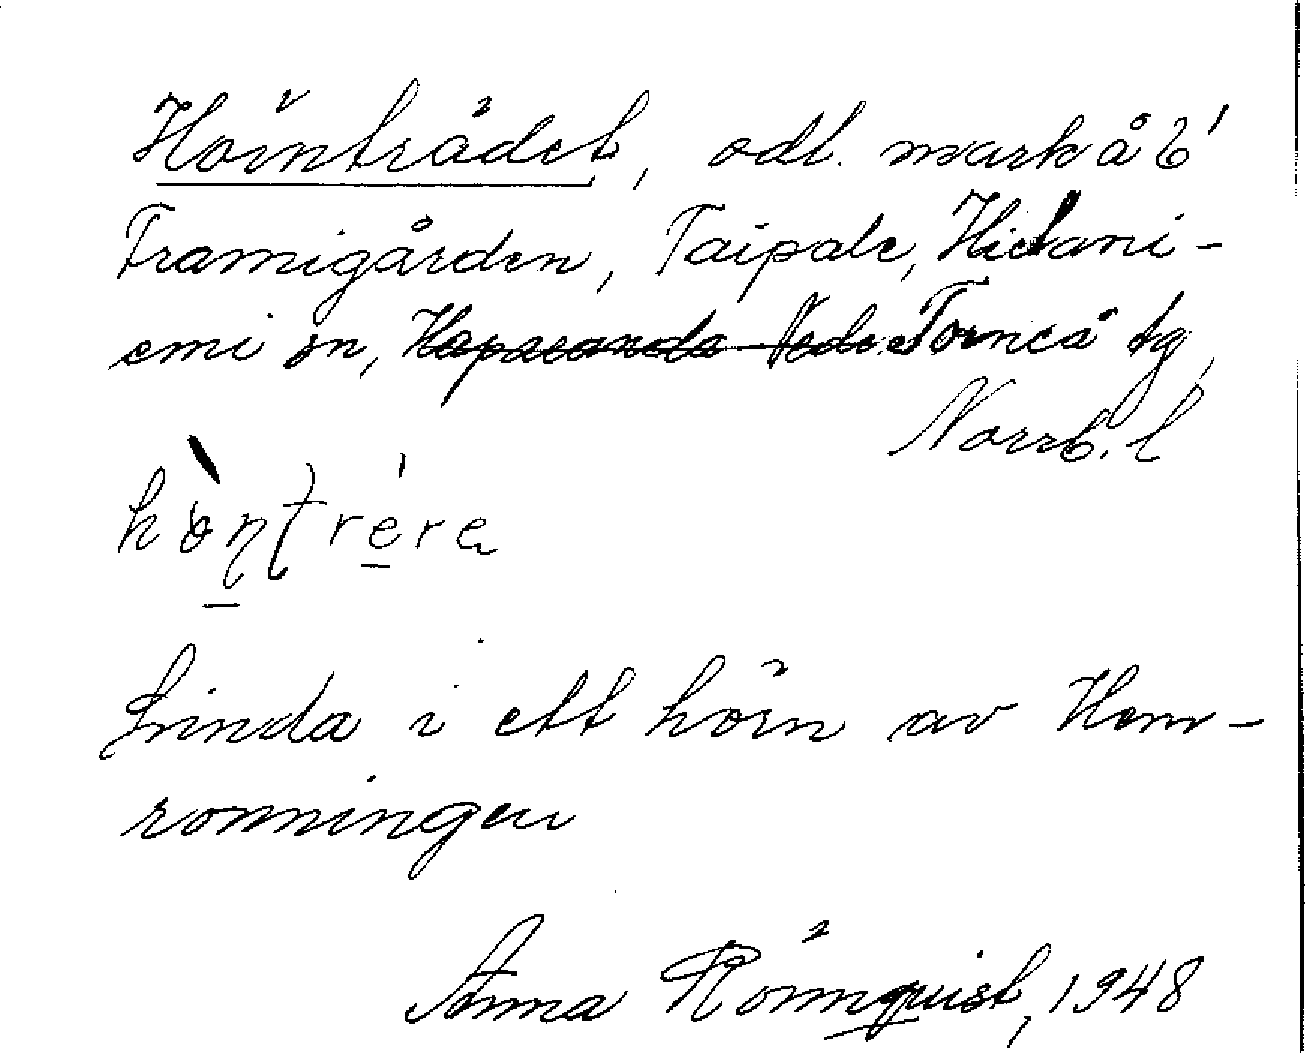 Hörnträdet, odl. mark å 6¹
Framigården, Taipale, Hietani-
emi sn, Haparanda Neder Torneå tg,
Norrb. l
Linda i ett hörn av Hem-
rönningen
Anna Rönnquist, 1948